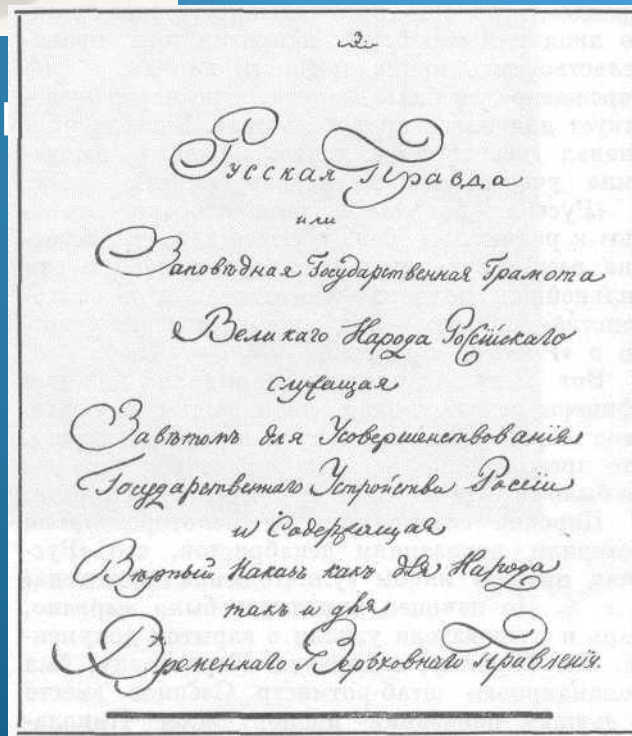 -2-
Русская Правда
или
Заповѣдная Государственная Грамота
Великаго Народа Россiйскаго
служащая
Завѣтомъ для Усовершенствованiя
Государственнаго Устройства Россiи
и Содержащая
Вѣрный Наказъ какъ для Народа
такъ и для
Временнаго Верьховнаго Правленiя.